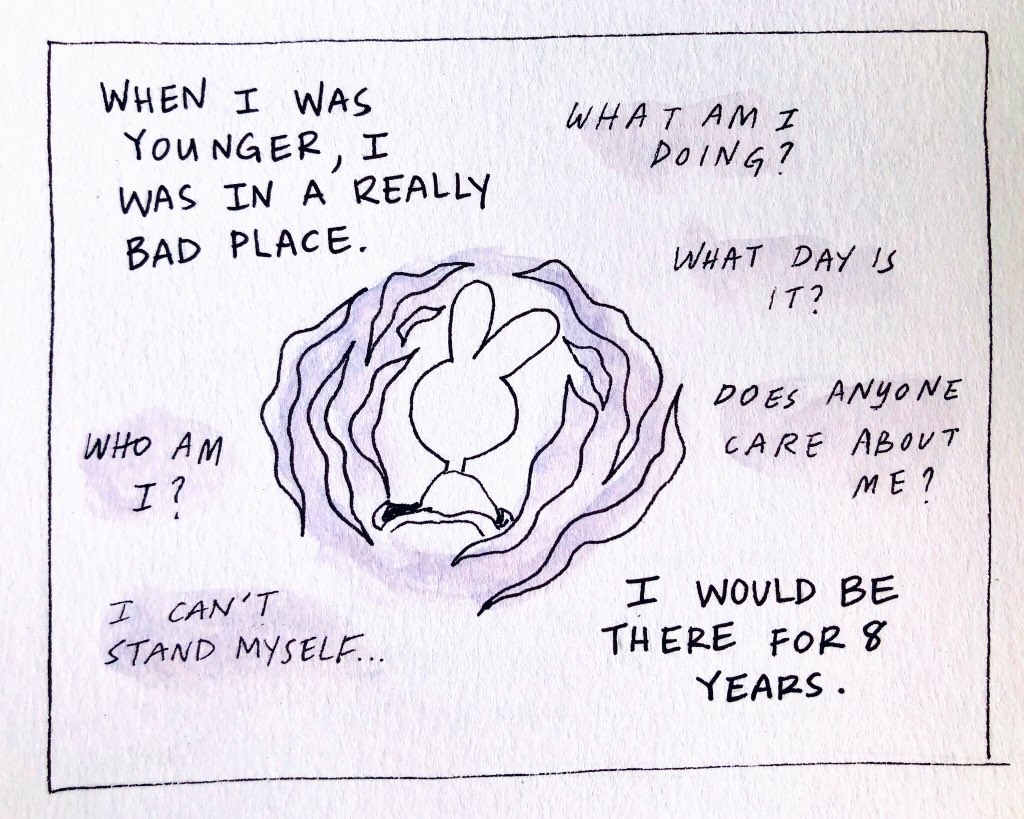 WHEN I WAS
YOUNGER, I
WAS IN A REALLY
BAD PLACE.
WHAT AM I
DOING?
WHAT DAY IS
IT?
DOES ANYONE
CARE ABOUT
ME?
WHO AM
I?
I CAN'T
STAND MYSELF...
I WOULD BE
THERE FOR 8
YEARS.